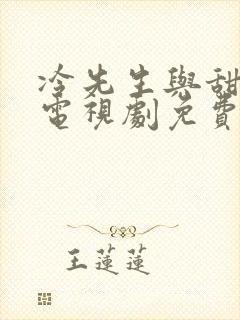 冷先生與甜
電視劇免費
王蓮蓮